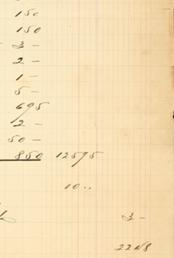 150
150
3 –
2 –
1 –
5 –
695
2 –
50 –
850 12595
10..
3 –